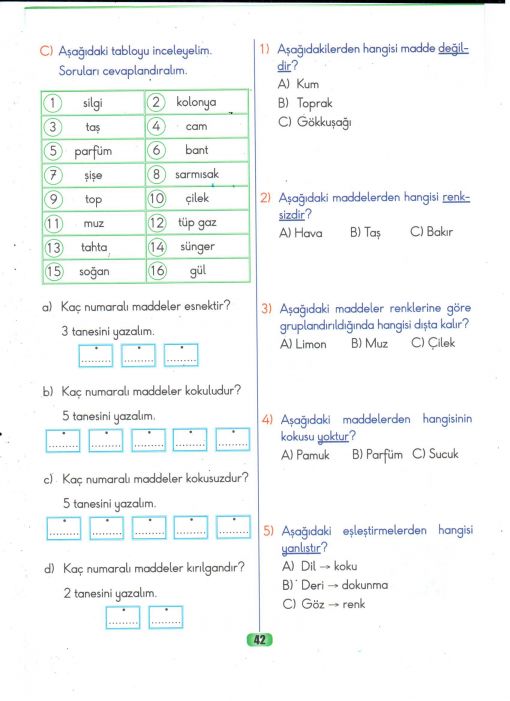 C) Aşağıdaki tabloyu inceleyelim.
Soruları cevaplandıralım.
1 silgi 2 kolonya
3 taş 4 cam
5 parfüm 6 bant
7 şişe 8 sarmısak
9 top 10 çilek
11 muz 12 tüp gaz
13 tahta 14 sünger
15 soğan 16 gül
a) Kaç numaralı maddeler esnektir?
3 tanesini yazalım.
b) Kaç numaralı maddeler kokuludur?
5 tanesini yazalım.
c) Kaç numaralı maddeler kokusuzdur?
5 tanesini yazalım.
d) Kaç numaralı maddeler kırılgandır?
2 tanesini yazalım.
1) Aşağıdakilerden hangisi madde değil-
dir?
A) Kum
B) Toprak
C) Gökkuşağı
2) Aşağıdaki maddelerden hangisi renk-
sizdir?
A) Hava B) Taş C) Bakır
3) Aşağıdaki maddeler renklerine göre
gruplandırıldığında hangisi dışta kalır?
A) Limon B) Muz C) Çilek
4) Aşağıdaki maddelerden hangisinin
kokusu yoktur?
A) Pamuk B) Parfüm C) Sucuk
5) Aşağıdaki eşleştirmelerden hangisi
yanlıştır?
A) Dil → koku
B) Deri → dokunma
C) Göz → renk
42